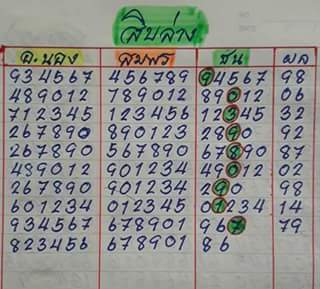 สิบล่าง
อ.นอง สมพร ชัน ผล
934567 456789 94567 98
489012 789012 89012 06
712345 123456 12345 32
267890 890123 2890 92
267890 567890 67890 87
489012 901234 49012 02
267890 901234 290 98
601234 012345 01234 14
934567 678901 967 79
823456 678901 86